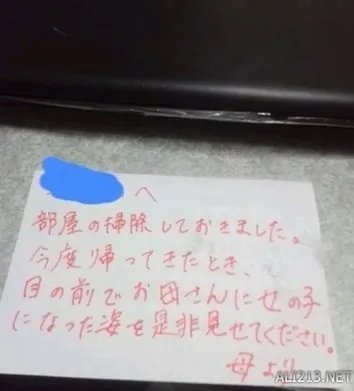 へ
部屋の掃除しておきました。
今度帰ってきたとき、
目の前でお母さんに女の子
になった姿を是非見せてください。
母より
ALI213.NET